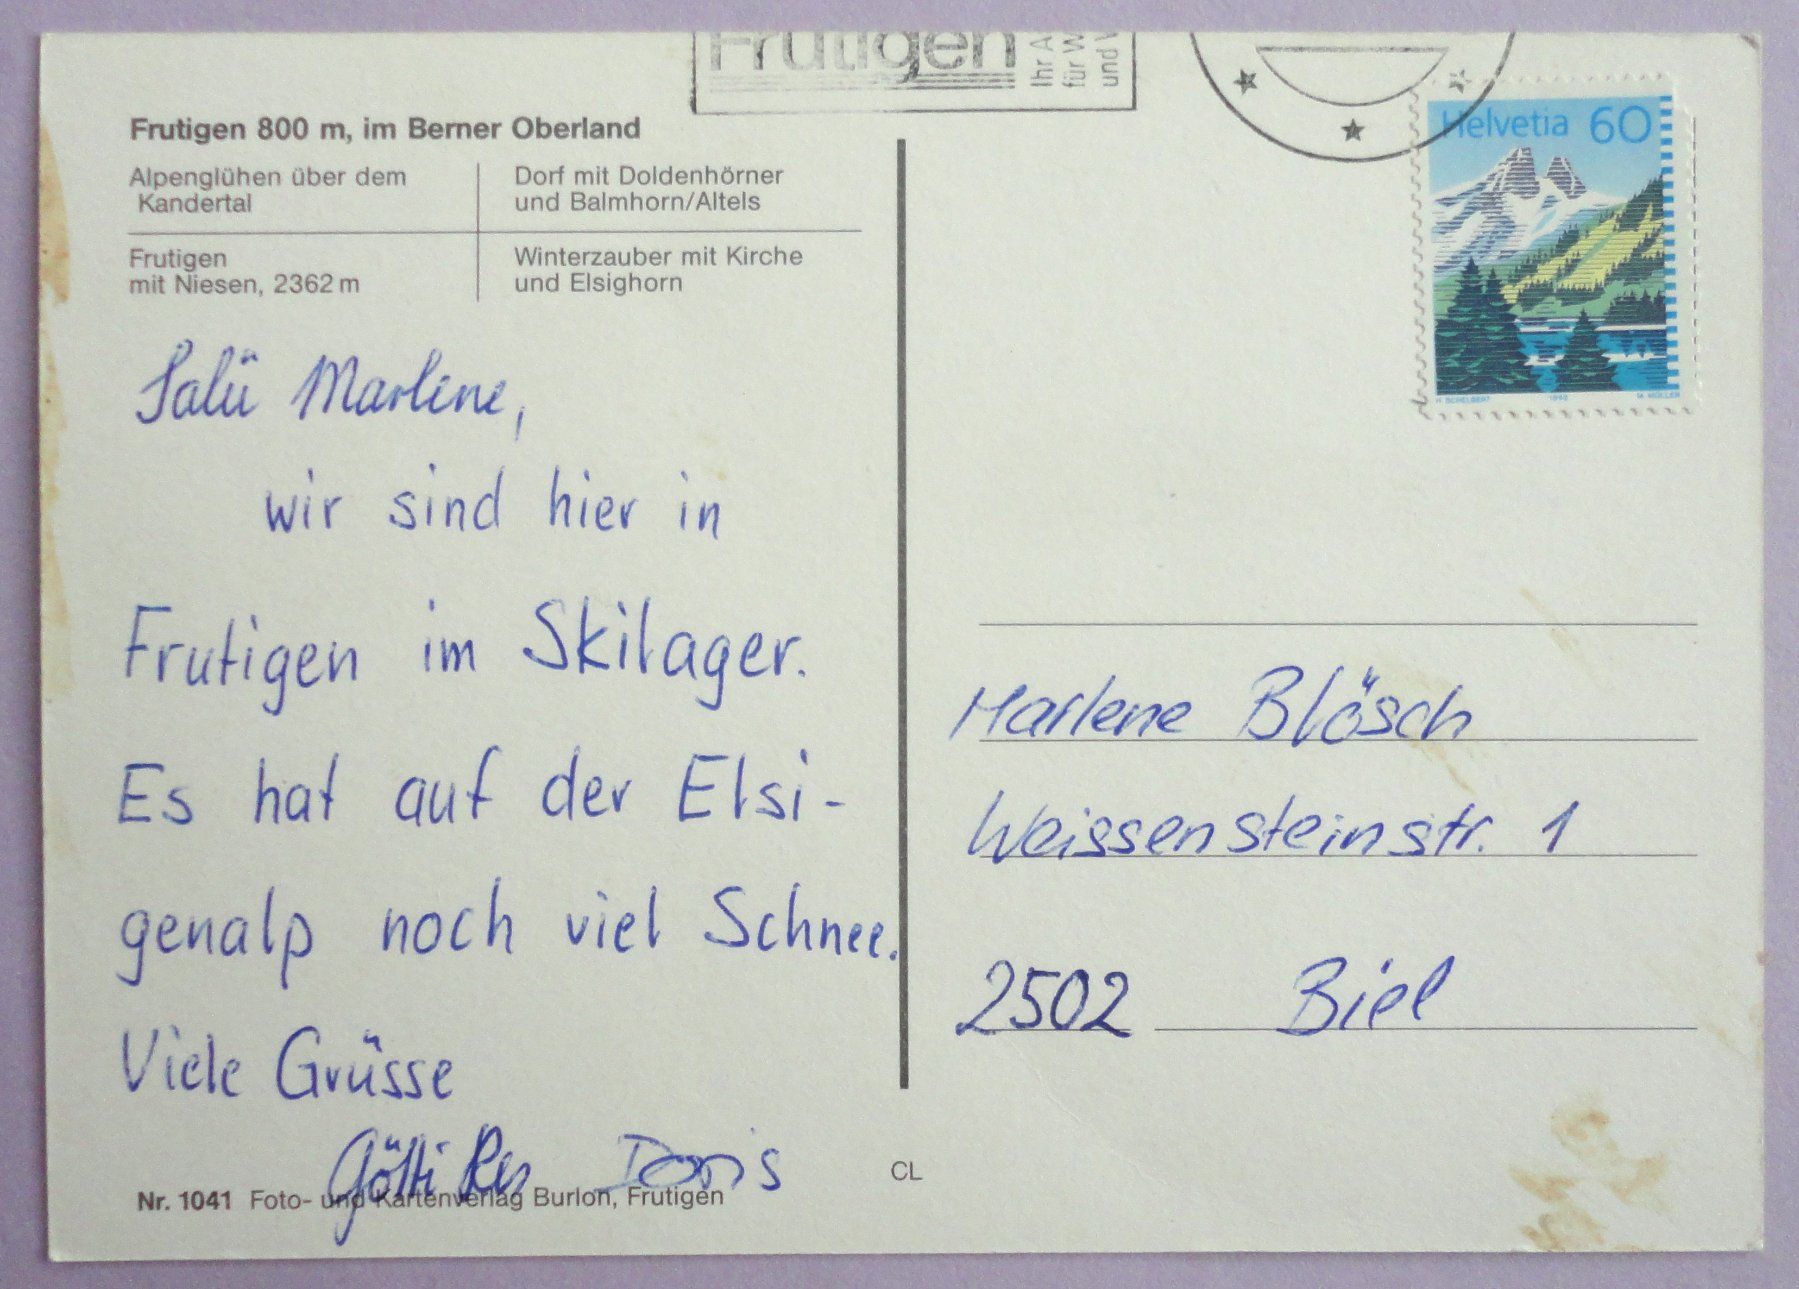 Frutigen
Ihr A
für W
und V
Helvetia 60
H. SCHELBERT 1992 M. MÜLLER
Frutigen 800 m, im Berner Oberland
Alpenglühen über dem
Kandertal
Dorf mit Doldenhörner
und Balmhorn/Altels
Frutigen
mit Niesen, 2362 m
Winterzauber mit Kirche
und Elsighorn
Salü Marlene,
wir sind hier in
Frutigen im Skilager.
Es hat auf der Elsi-
genalp noch viel Schnee.
Viele Grüsse
Götti Doris
Marlene Blösch
Weissensteinstr. 1
2502 Biel
Nr. 1041 Foto- und Kartenverlag Burlon, Frutigen
CL